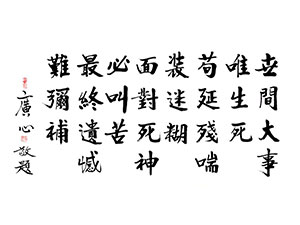 世間大事
唯生死
苟延殘喘
裝迷糊
面對死神
必叫苦
最終遺憾
難彌補
廣心敬題